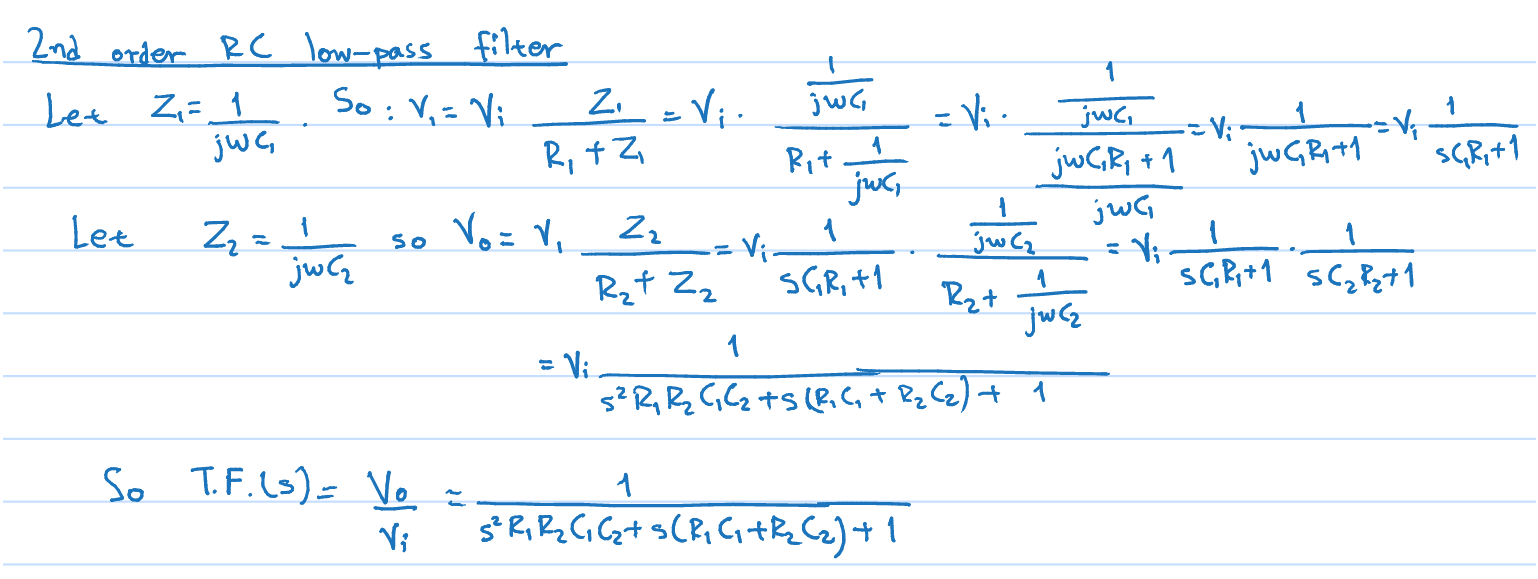 2nd order RC low-pass filter
Let Z₁ = 1/(jωC₁). So: V₁ = Vᵢ Z₁/(R₁ + Z₁) = Vᵢ · (1/(jωC₁))/(R₁ + 1/(jωC₁)) = Vᵢ · (1/(jωC₁))/((jωC₁R₁ + 1)/(jωC₁)) = Vᵢ 1/(jωC₁R₁+1) = Vᵢ 1/(sC₁R₁+1)
Let Z₂ = 1/(jωC₂) so V₀ = V₁ Z₂/(R₂ + Z₂) = Vᵢ 1/(sC₁R₁+1) · (1/(jωC₂))/(R₂ + 1/(jωC₂)) = Vᵢ 1/(sC₁R₁+1) · 1/(sC₂R₂+1)
= Vᵢ 1/(s²R₁R₂C₁C₂ + s(R₁C₁ + R₂C₂) + 1)
So T.F.(s) = V₀/Vᵢ ≈ 1/(s²R₁R₂C₁C₂ + s(R₁C₁+R₂C₂) + 1)